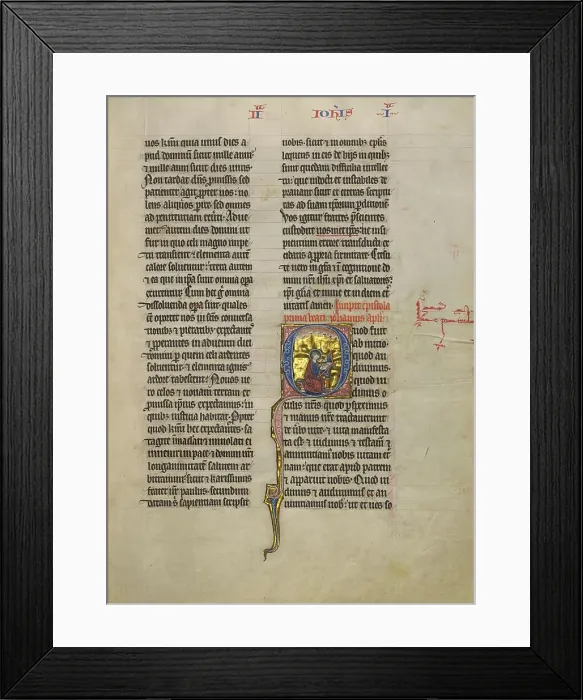 II Iohis I
uos kmi quia unus dies a
pud dominum sicut mille anni
⁊ mille anni sicut dies unus
Non tardat dns pmissis sed
patienter agit ppter uos: no
lens aliquos pire sed omnes
ad penitentiam Adue
niet autem dies domini ut
fur in quo celi magno impe
tu transient ⁊ elementa
calore soluentur: terra autem
⁊ ea que in ipsa sunt omnia opa
exurentur. Cum hec omnia
dissoluenda sunt quales
oportet uos in sctis conuersa
tionib ⁊ pietatib expectantes
⁊ pperantes in aduentu diei
domini p quem celi ardentes
soluentur ⁊ elementa ignis
ardore tabescent. Nouos ue
ro celos ⁊ nouam terram ⁊
pmissa ipsius expectamus: in
quib iusticia habitat. Ppter
quod kmi hec expectantes sa
tagite immaculati ⁊ inuiolati ei
inueniri in pace: ⁊ domini nri
longanimitatem salutem ar
bitramini sicut ⁊ karissimus
frater nr paulus secundum
datam s sapientiam scripsit
nobis. sicut ⁊ in omnib eplis
loquens in eis de hijs in quib
sunt quedam difficilia intellec
tu: que indocti ⁊ instabiles de
prauant sicut ⁊ ceteras scriptu
ras ad suam ipsorum pditionem
Vos igitur fratres pscientes
custodite uos metipsos ne insi
pientium errore transducti ex
cidatis a ppria firmitate. Cresci
te uero in gra ⁊ in cognitione do
mini nri ihu xpi ⁊ saluatoris
ipi gloria ⁊ nunc ⁊ in diem et
nitatis amen. Incipit epistola
prima beati iohannis apli.
Quod fuit
ab initio
quod au
diuimus
quod ui
dimus o
culis nris quod pspeximus
⁊ manus nre tractauerunt
de ubo uite: ⁊ uita manifesta
ta est ⁊ uidimus ⁊ testam ⁊
annuntiam uobis uitam et
nam: que erat apud patrem
⁊ apparuit nobis. Quod ui
dimus ⁊ audiuimus ⁊ an
nuntiamus uob: ut ⁊ uos so